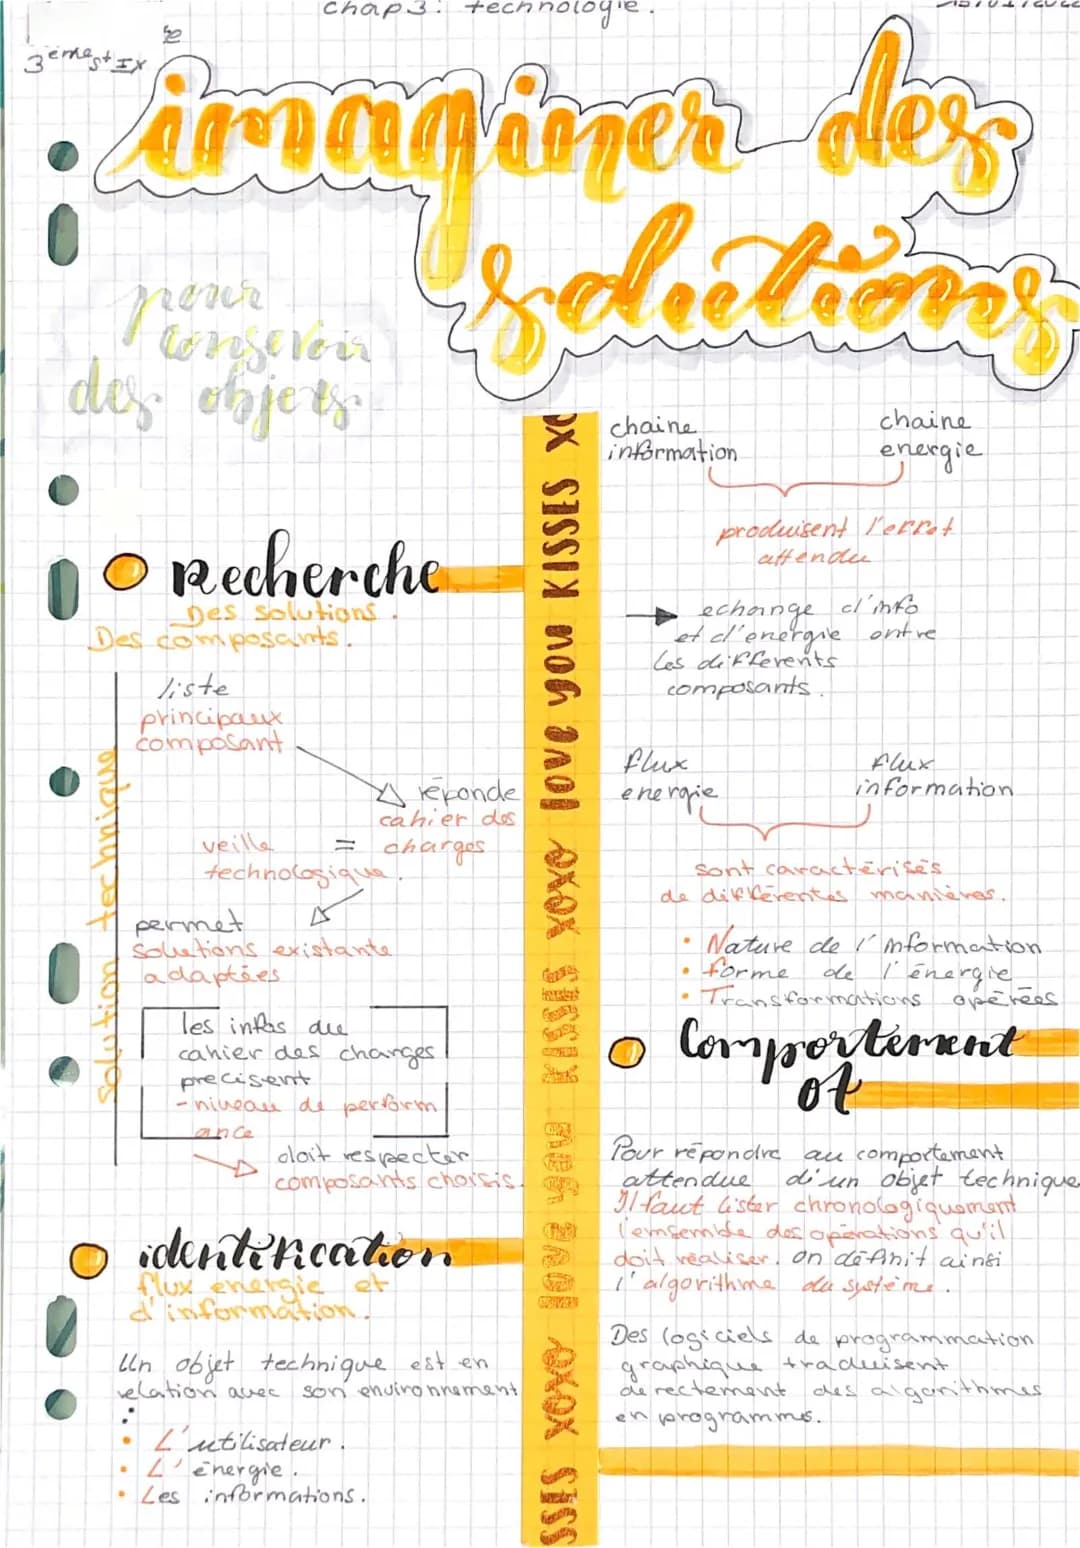 chap3: technologie.
3eme
imaginer des
solutions
pour
consevoir
des objets.
Recherche
Des solutions.
Des composants.
solution technique
liste
principaux
composant
réponde
cahier des
charges
=
veille
technologique.
permet
solutions existante
adaptées
les infos du
cahier des charges
precisent
- niveau de perform
ance
doit respecter
composants choisis.
identification
flux energie et
d'information.
Un objet technique est en
relation avec son environnement
:
• L'utilisateur.
• L'énergie.
• Les informations.
SSES xoxo love you KISSES xoxo love you KISSES xo
chaine
information
chaine
energie
produisent l'effet
attendu
echange d'info
et d'energie entre
les differents
composants.
flux
energie
flux
information
sont caractérisés
de différentes manières.
• Nature de l'information
• forme de l'énergie
• Transformations opérées
Comportement
ot
Pour répondre au comportement
attendue d'un objet technique
Il faut lister chronologiquement
l'ensemble des opérations qu'il
doit réaliser. On définit ainsi
l'algorithme du système.
Des logiciels de programmation
graphique traduisent
derectement des algorithmes
en programmes.